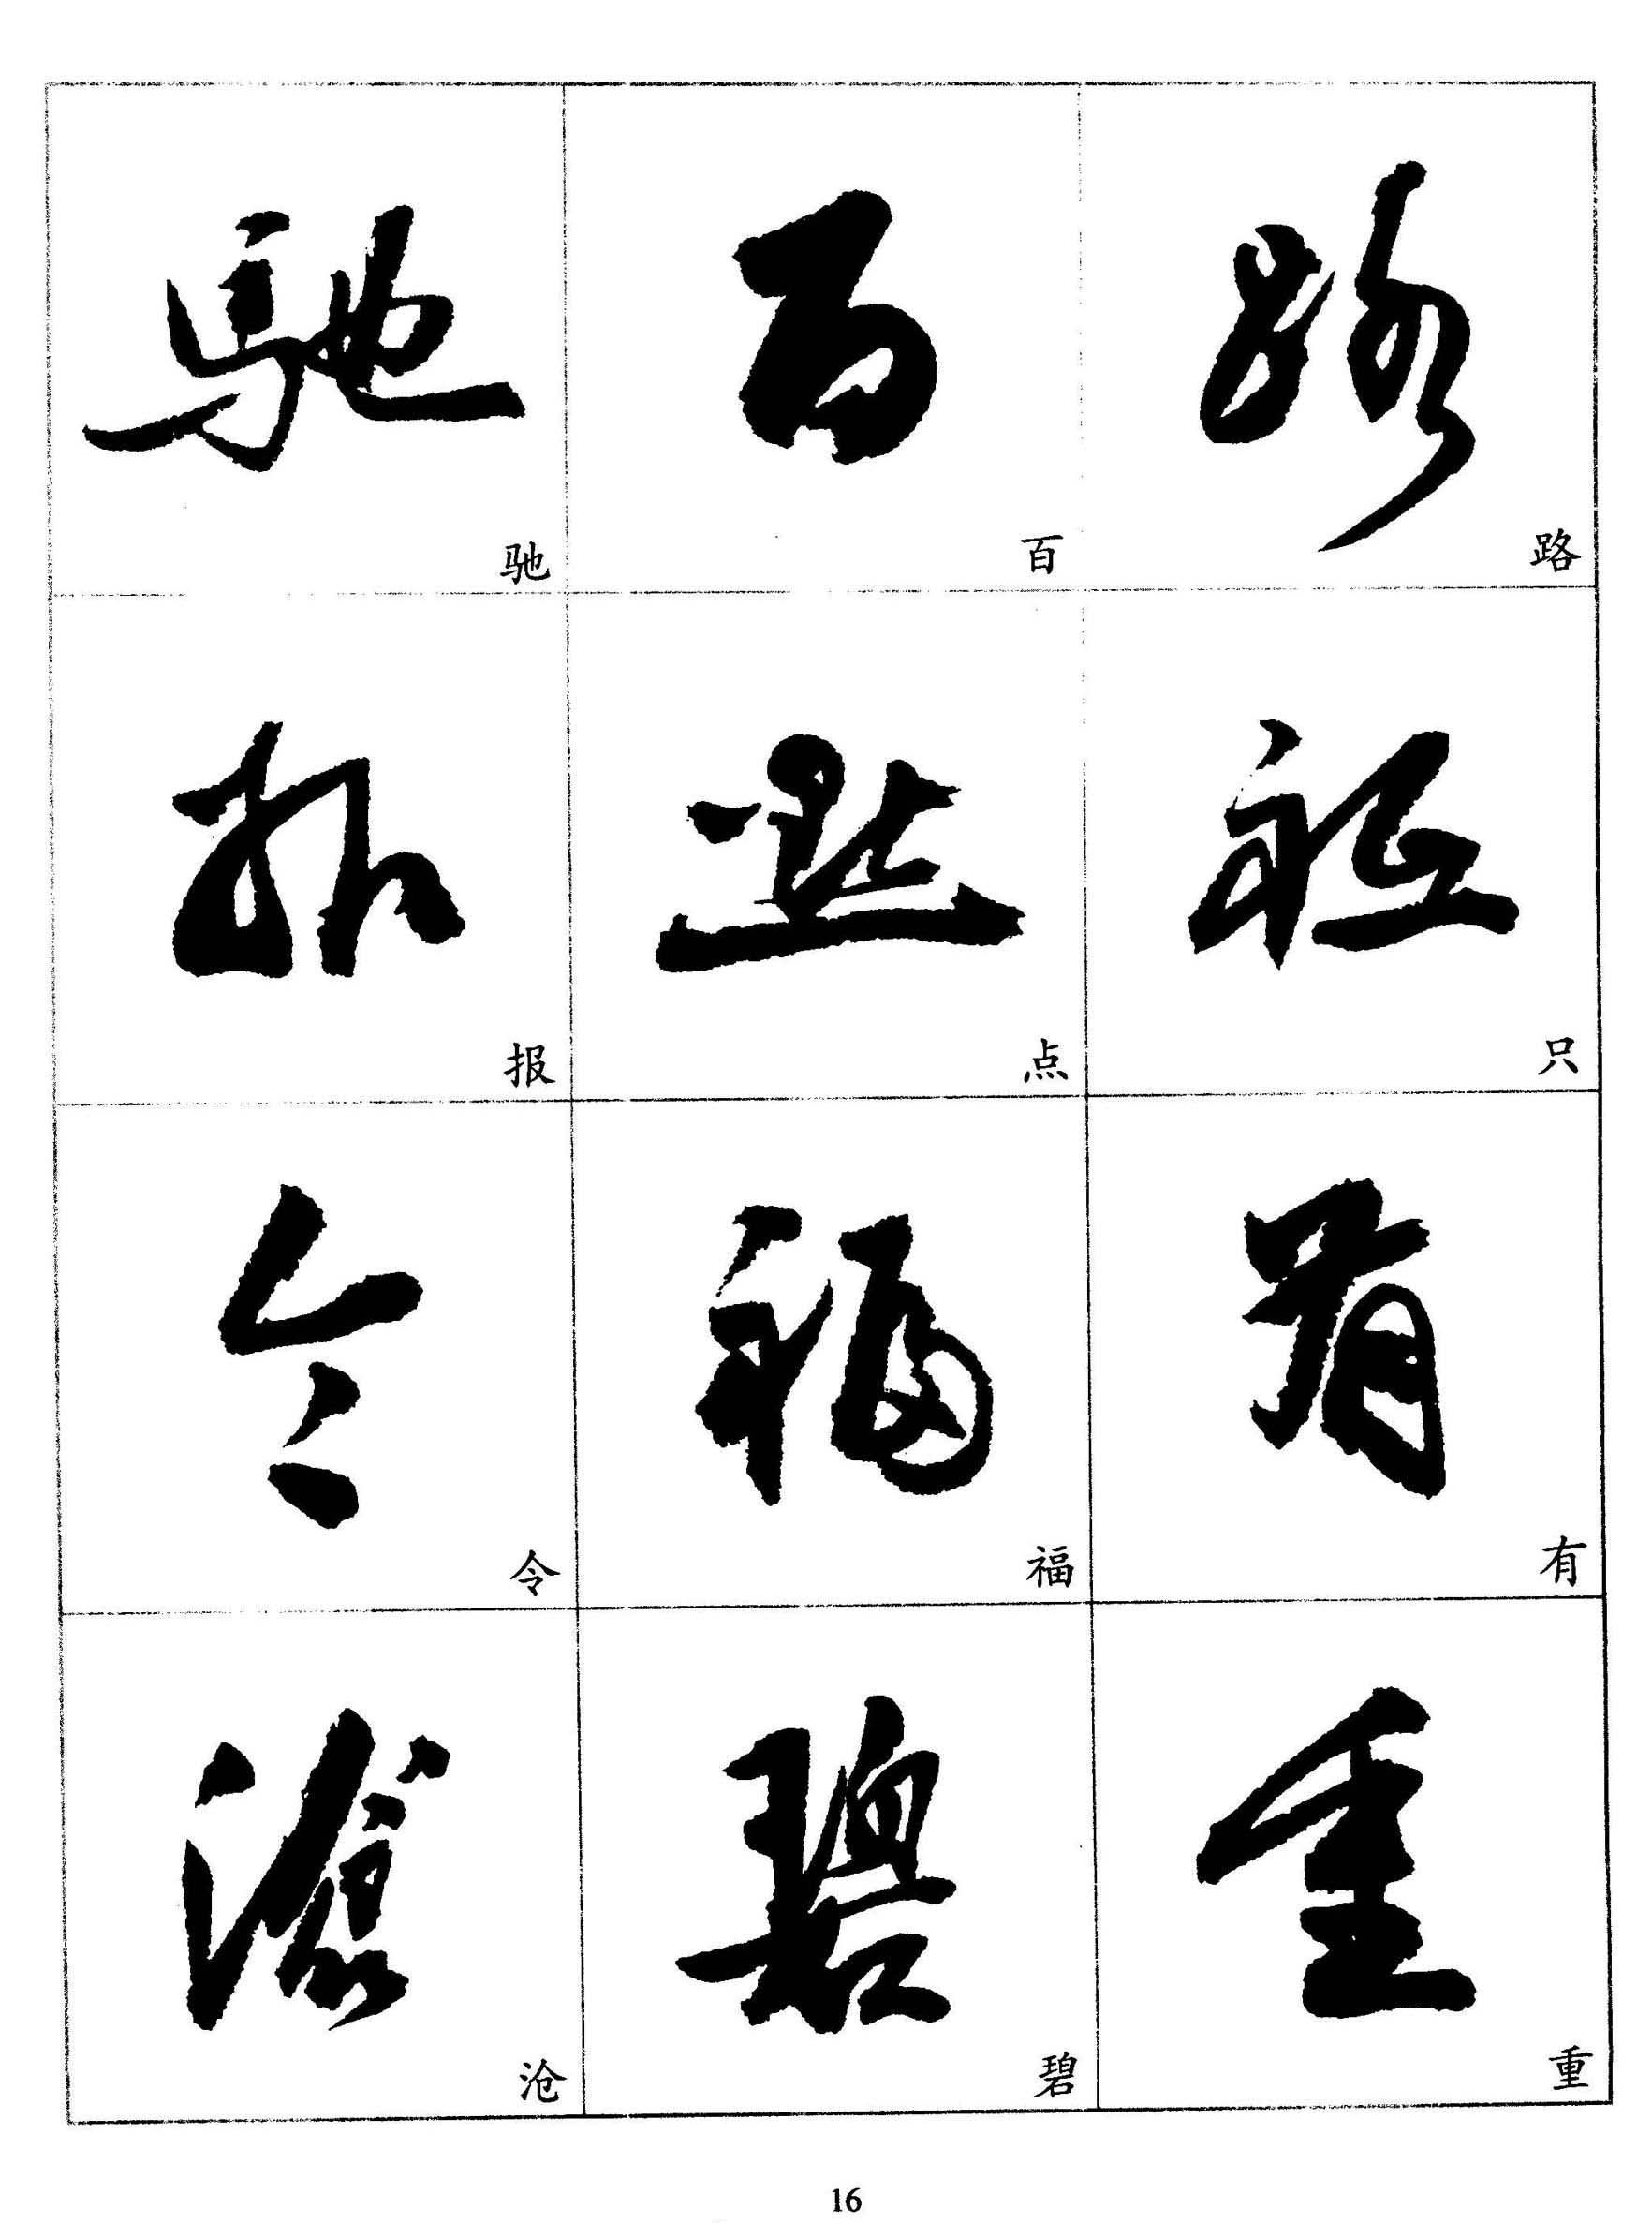 驰 百 路
报 点 只
令 福 有
沧 碧 重
16